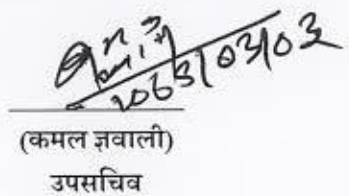 2063/03/03
(कमल ज्ञवाली)
उपसचिव